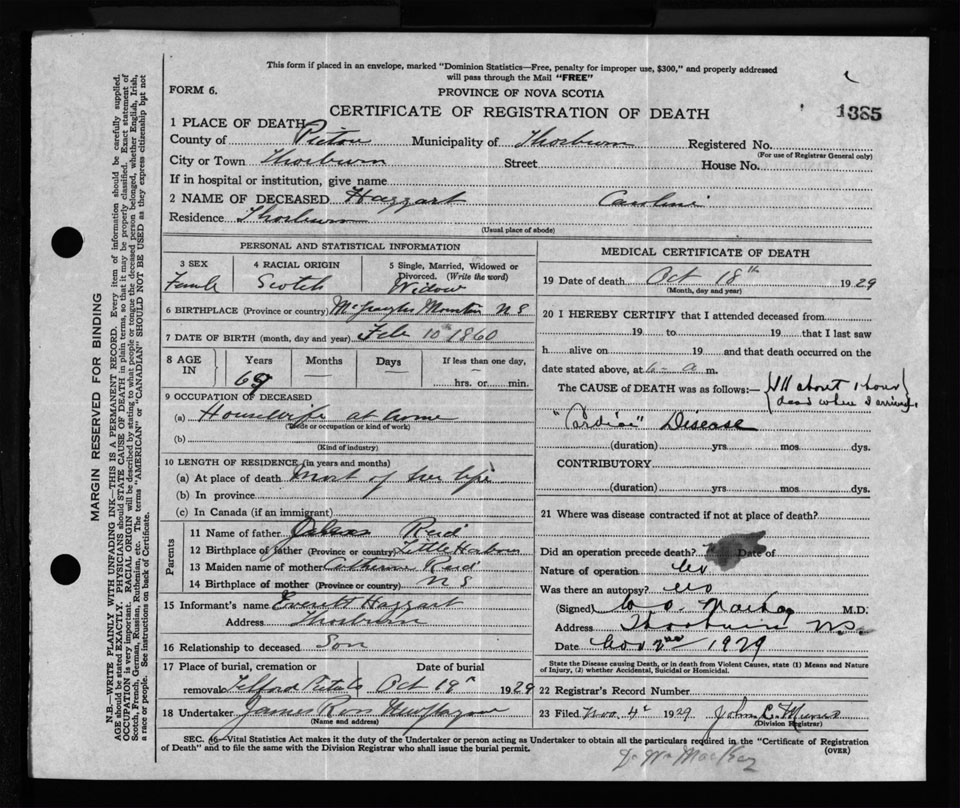 This form if placed in an envelope, marked "Dominion Statistics—Free, penalty for improper use, $300," and properly addressed
will pass through the Mail "FREE"
FORM 6.
PROVINCE OF NOVA SCOTIA
CERTIFICATE OF REGISTRATION OF DEATH
1385
1 PLACE OF DEATH
County of Pictou Municipality of Thorburn Registered No.
(For use of Registrar General only)
City or Town Thorburn Street House No.
If in hospital or institution, give name
2 NAME OF DECEASED Haggart Caroline
Residence Thorburn
(Usual place of abode)
PERSONAL AND STATISTICAL INFORMATION
3 SEX 4 RACIAL ORIGIN 5 Single, Married, Widowed or Divorced. (Write the word)
Female Scotch Widow
6 BIRTHPLACE (Province or country) Mountain N S
7 DATE OF BIRTH (month, day and year) Feb 10 1860
8 AGE IN Years Months Days If less than one day,
69 hrs. or min.
9 OCCUPATION OF DECEASED
(a) Housewife at home
(Trade or occupation or kind of work)
(b)
(Kind of industry)
10 LENGTH OF RESIDENCE (in years and months)
(a) At place of death most of her life
(b) In province
(c) In Canada (if an immigrant)
Parents
11 Name of father Reid
12 Birthplace of father (Province or country) Little Harbour
13 Maiden name of mother Catherine Reid
14 Birthplace of mother (Province or country) N S
15 Informant's name Everett Haggart
Address Thorburn
16 Relationship to deceased Son
17 Place of burial, cremation or Date of burial
removal Telford Oct 19 1929
18 Undertaker James Ross New Glasgow
(Name and address)
MEDICAL CERTIFICATE OF DEATH
19 Date of death Oct 18th 1929
(Month, day and year)
20 I HEREBY CERTIFY that I attended deceased from
19 to 19 that I last saw
h alive on 19 and that death occurred on the
date stated above, at 6 - a m.
The CAUSE OF DEATH was as follows:— {Ill about 1 hour
dead when I arrived}
"Cardiac" Disease
(duration) yrs mos dys.
CONTRIBUTORY
(duration) yrs mos dys.
21 Where was disease contracted if not at place of death?
Did an operation precede death? Date of
Nature of operation
Was there an autopsy? no
(Signed) M.D.
Address Thorburn N.S.
Date Nov 2nd 1929
State the Disease causing Death, or in death from Violent Causes, state (1) Means and Nature
of Injury, (2) whether Accidental, Suicidal or Homicidal.
22 Registrar's Record Number
23 Filed Nov. 4th 1929 John C. Munro
(Division Registrar)
SEC. 46—Vital Statistics Act makes it duty of the Undertaker or person acting as Undertaker to obtain all the particulars required in the "Certificate of Registration
of Death" and to file the same with the Division Registrar who shall issue the burial permit.
(OVER)
MARGIN RESERVED FOR BINDING
N.B.—WRITE PLAINLY WITH UNFADING INK—THIS IS A PERMANENT RECORD. Every item of information should be carefully supplied.
AGE should be stated EXACTLY. PHYSICIANS should STATE CAUSE OF DEATH in plain terms, so that it may be properly classified. Exact statement of
OCCUPATION is very important. RACIAL ORIGIN will be described by stating to what people or tongue the deceased person belonged, whether English, Irish,
Scotch, French, German, Russian, Ruthenian, etc. The terms "AMERICAN" or "CANADIAN" SHOULD NOT BE USED as they express citizenship but not
a race or people. See instructions on back of Certificate.